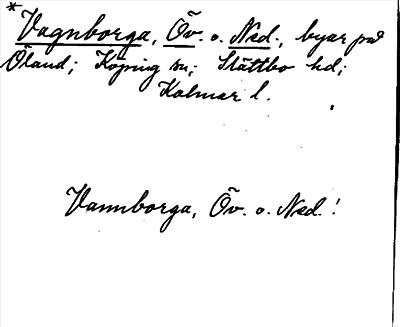 * Vagnborga, Öv. o. Ned., byar på
Öland; Köping sn; Slättbo hd;
Kalmar l.
Vannborga, Öv. o. Ned.!